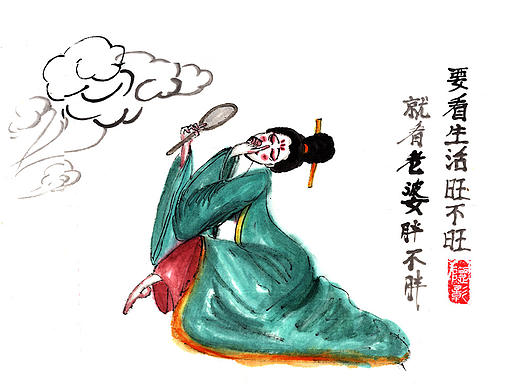 要看生活旺不旺
就看老婆胖不胖